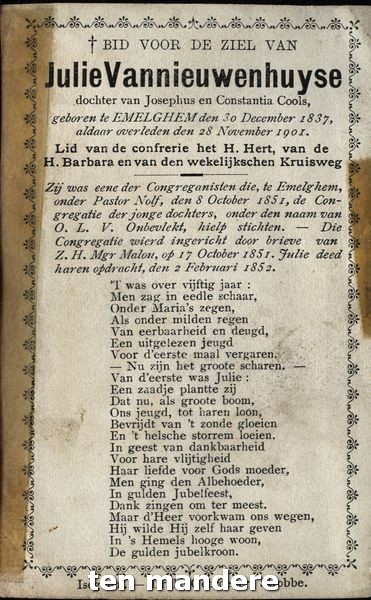 † BID VOOR DE ZIEL VAN
Julie Vannieuwenhuyse
dochter van Josephus en Constantia Cools,
geboren te EMELGHEM den 30 December 1837,
aldaar overleden den 28 November 1901.
Lid van de confrerie het H. Hert, van de
H. Barbara en van den wekelijkschen Kruisweg
Zij was eene der Congreganisten die, te Emelghem,
onder Pastor Nolf, den 8 October 1851, de Con-
gregatie der jonge dochters, onder den naam van
O. L. V. Onbevlekt, hielp stichten. — Die
Congregatie wierd ingericht door brieve van
Z. H. Mgr Malou, op 17 October 1851. Julie deed
haren opdracht, den 2 Februari 1852.
'T was over vijftig jaar :
Men zag in eedle schaar,
Onder Maria's zegen,
Als onder milden regen
Van eerbaarheid en deugd,
Een uitgelezen jeugd
Voor d'eerste maal vergaren.
— Nu zijn het groote scharen. —
Van d'eerste was Julie :
Een zaadje plantte zij
Dat nu, als groote boom,
Ons jeugd, tot haren loon,
Bevrijdt van 't zonde gloeien
En 't helsche storrem loeien.
In geest van dankbaarheid
Voor hare vlijtigheid
Haar liefde voor Gods moeder,
Men ging den Albehoeder,
In gulden Jubelfeest,
Dank zingen om ter meest.
Maar d'Heer voorkwam ons wegen,
Hij wilde Hij zelf haar geven
In 's Hemels hooge woon,
De gulden jubelkroon.
ten mandere